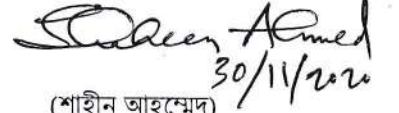 Shaheen Ahmed
30/11/2020
(শাহীন আহম্মেদ)